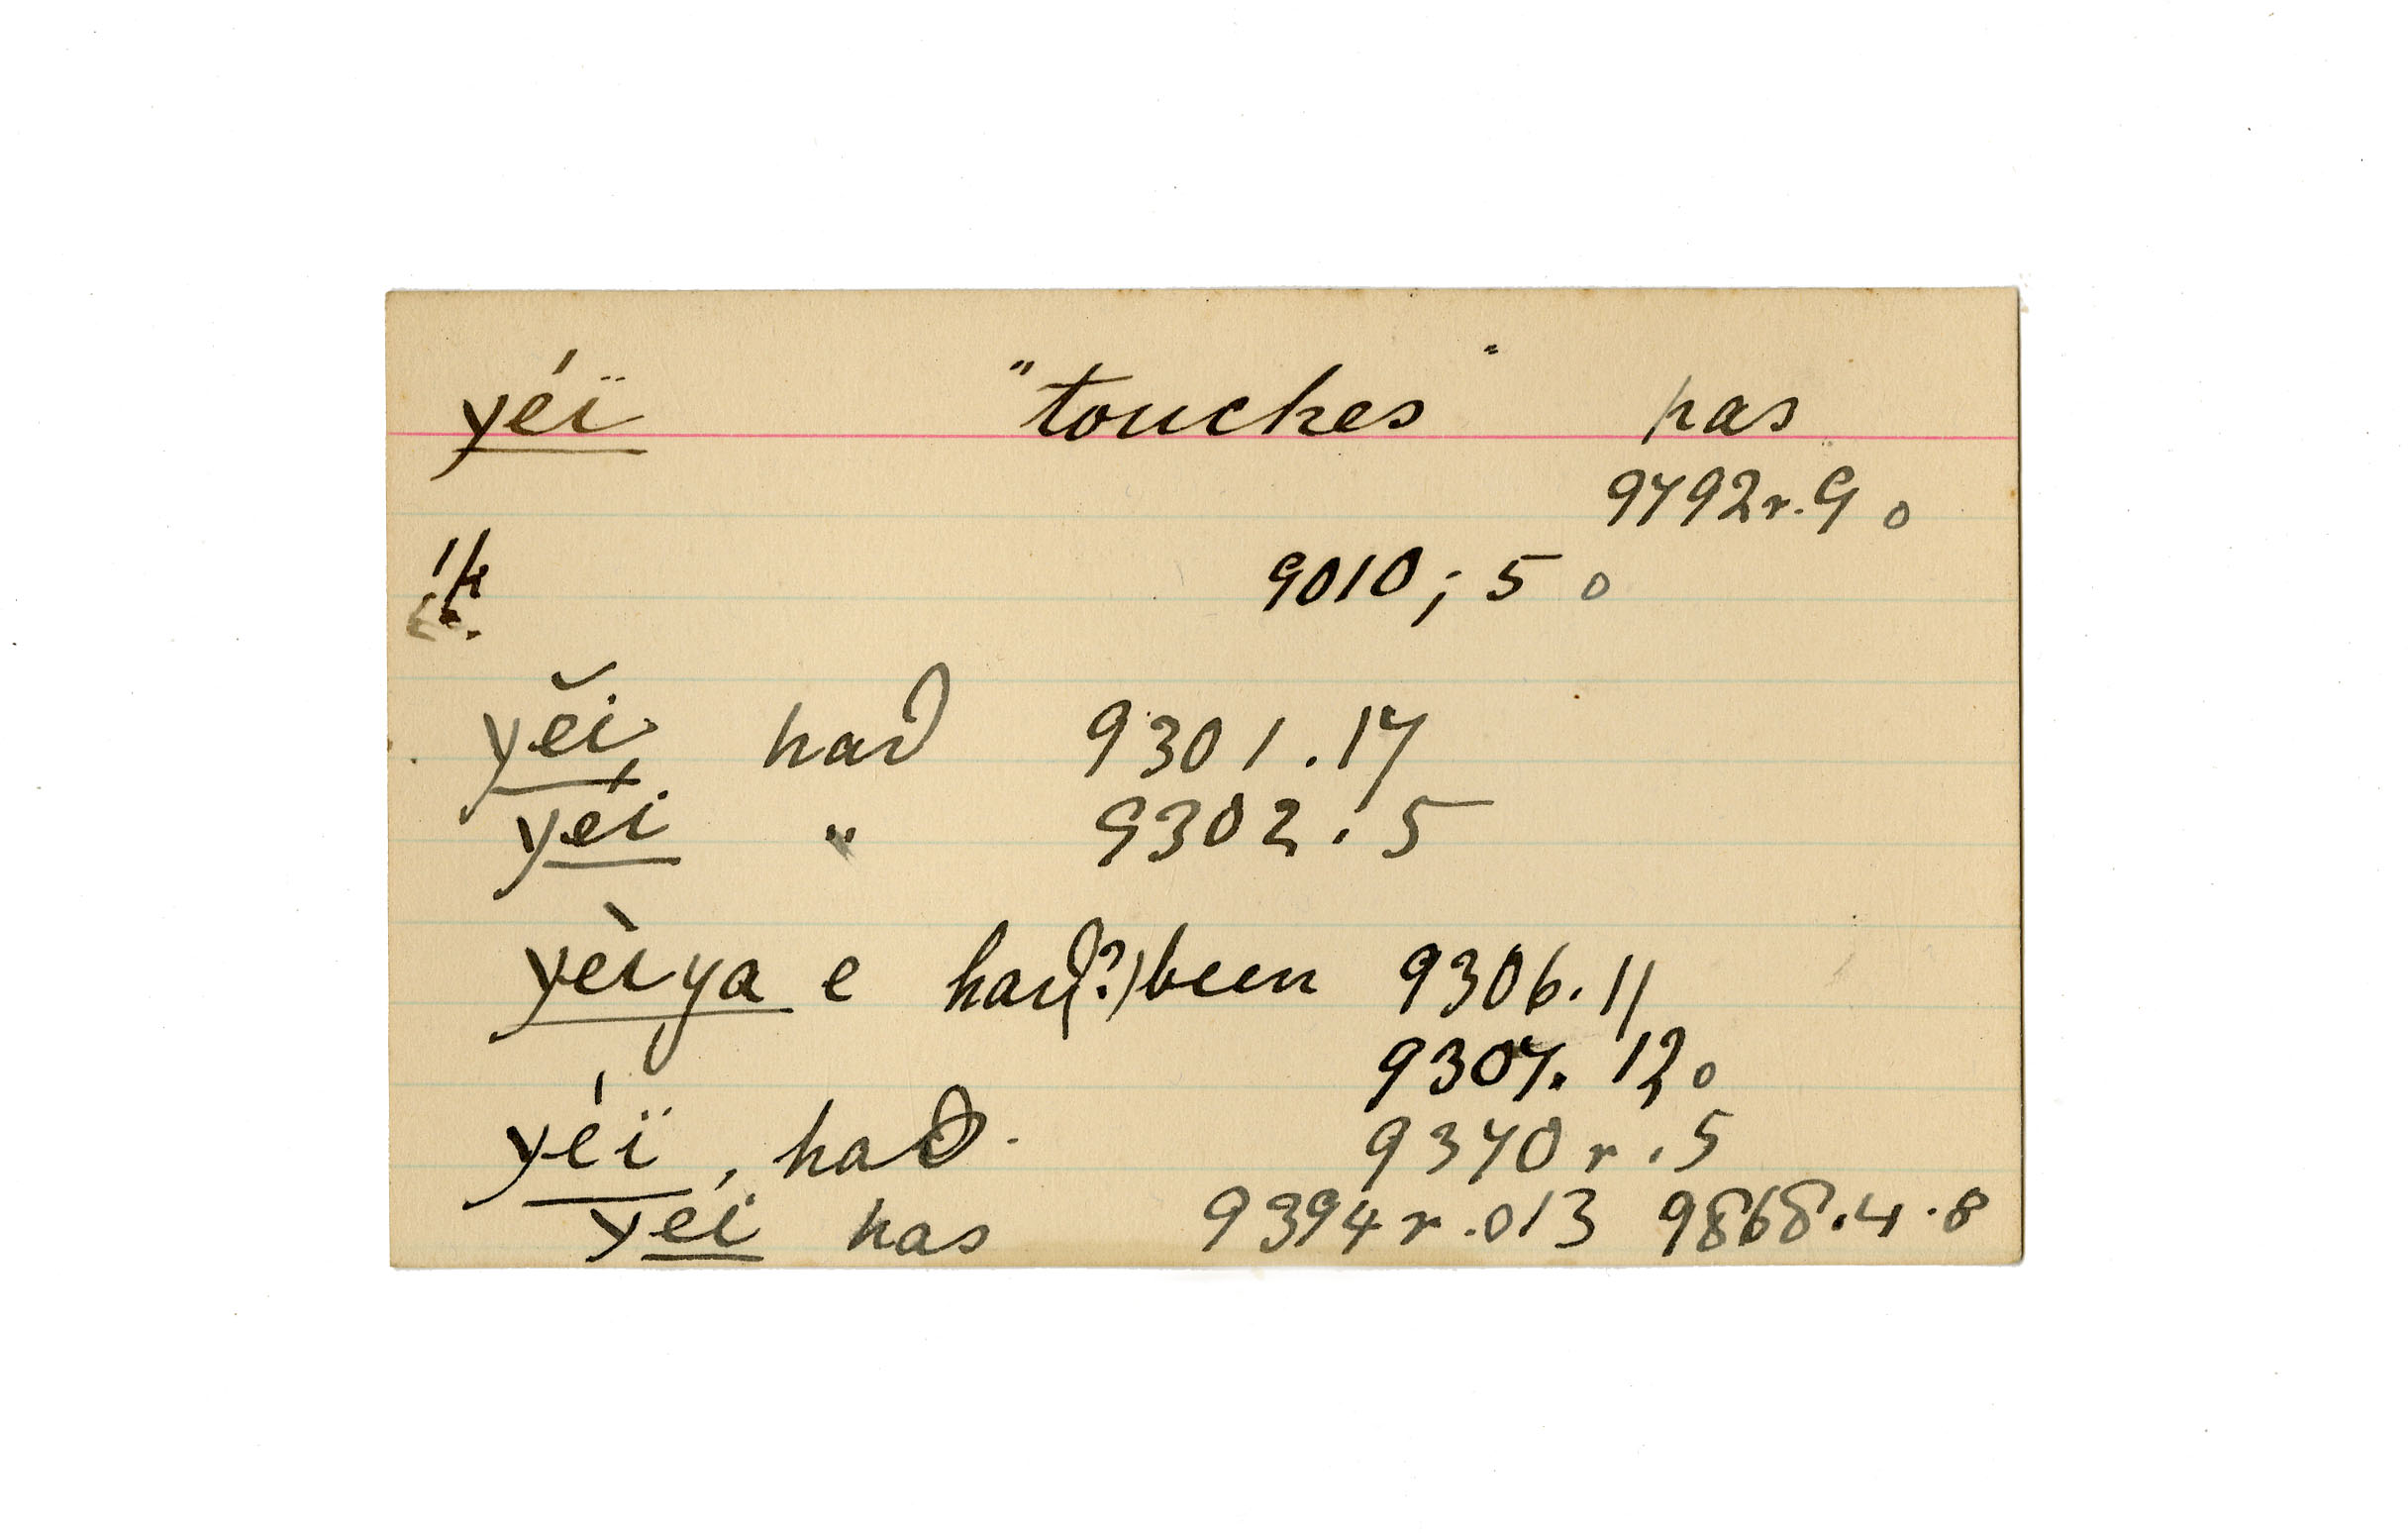 yéï "touches" has
9792r.9 o
9010; 5 o
yĕi, had 9301.17
yéi " 9302.5
yèiya e had(?) been 9306.11
9307. 12 o
yéï, had. 9370r.5
yéi has 9394r.013 9868.4.8